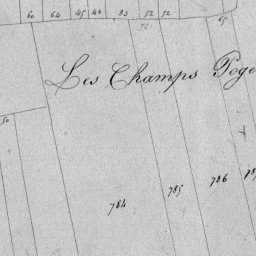 60 64 45 44 53 52 52
65
Les Champs Poge
50
784 785 786 787